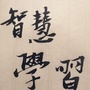 智慧
學習